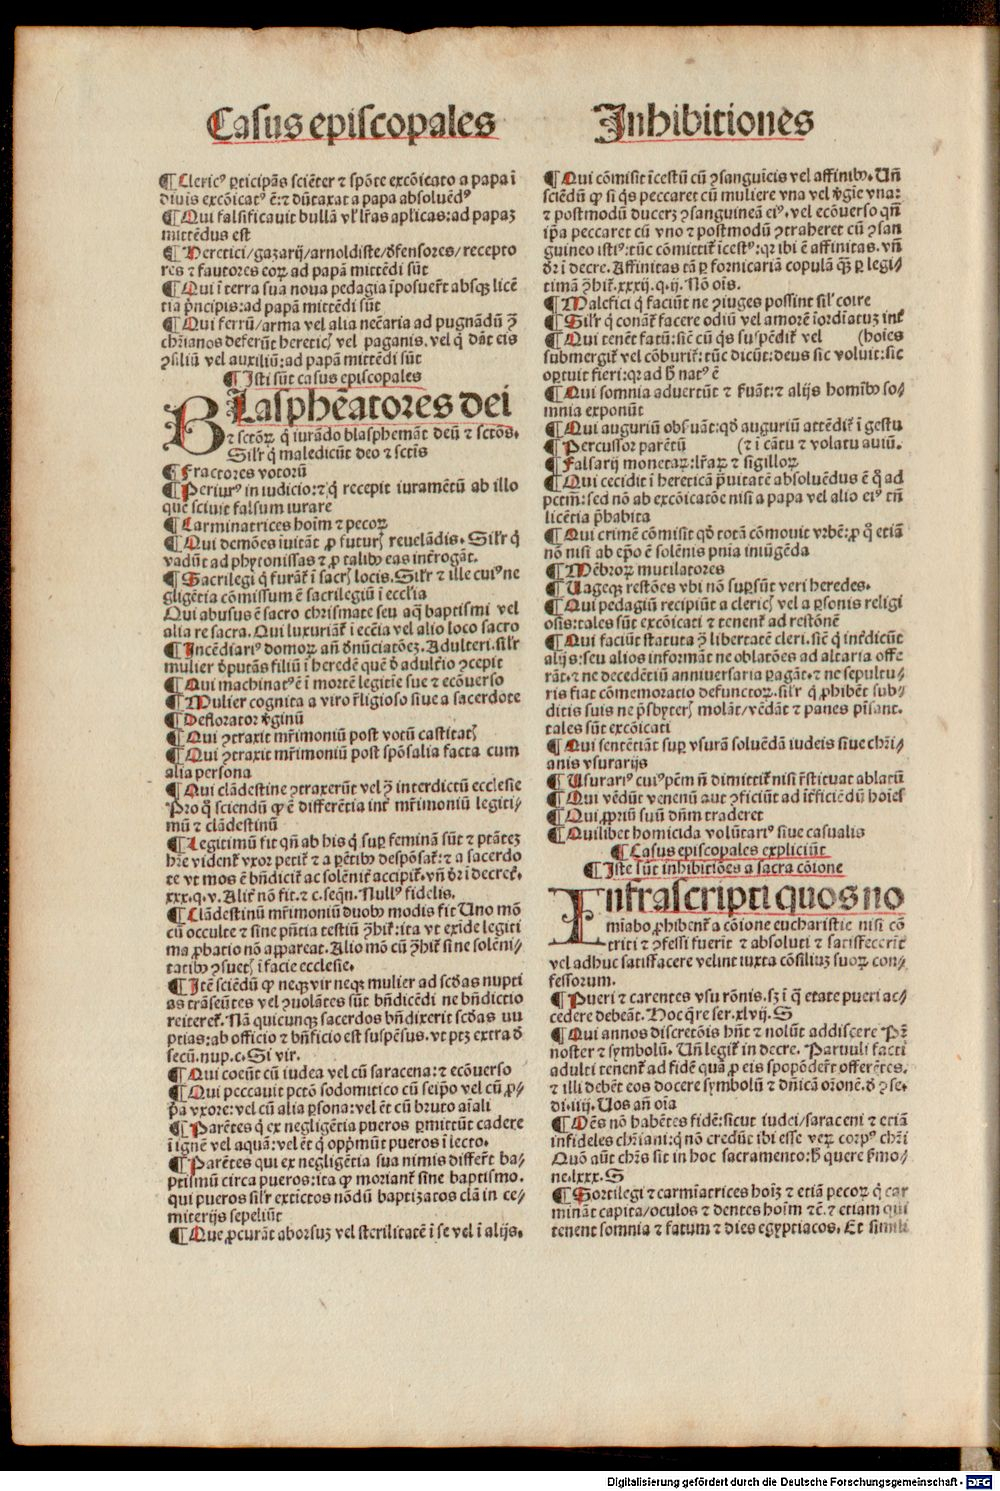 Casus episcopales
Inhibitiones
¶ Clericꝰ ꝑticipãs sciẽter ⁊ spõte excõicato a papa ĩ
diuis excõicatꝰ ẽ: ⁊ dũtaxat a papa absoluẽdꝰ
¶ Qui falsificauit bullã vľ lr̃as aplicas: ad papaȝ
mittẽdus est
¶ Heretici/gazarij/arnoldiste/defensores/recepto
res ⁊ fautores eoꝝ ad papã mittẽdi sũt
¶ Qui ĩ terra sua noua pedagia ĩposuer̃t absqȝ licẽ
tia p̃ncipis: ad papã mittẽdi sũt
¶ Qui ferrũ/arma vel alia necẽaria ad pugnãdũ ꝯ̃
chr̃ianos deferũt hereticꝭ vel paganis. vel q̇ dãt eis
ꝯsiliũ vel auxiliũ: ad papã mittẽdi sũt
¶ Isti sũt casus episcopales
Blasphẽatores dei
⁊ sctõꝝ q̇ iurãdo blasphemãt deũ ⁊ sctõs.
Silr̃ q̇ maledicũt deo ⁊ sctis
¶ Fractores votorũ
¶ Periurꝰ in iudicio: ⁊ q̇ recepit iuramẽtũ ab illo
quẽ sciuit falsum iurare
¶ Carminatrices hoĩm ⁊ pecoꝝ
¶ Qui demões ĩuitãt ꝓ futurꝭ reuelãdis. Silr̃ q̇
vadũt ad phytonissas ⁊ ꝓ talibꝰ eas int̃rogãt.
¶ Sacrilegi q̇ furãt̃ ĩ sacrꝭ locis. Silr̃ ⁊ ille cuiꝰ ne
gligẽtia cõmissum ẽ sacrilegiũ ĩ eccľia
Qui abusus ẽ sacro chrismate seu aq̃ baptismi vel
alia re sacra. Qui luxuriãt̃ ĩ ecc̃ia vel alio loco sacro
¶ Incẽdiarꝰ domoꝝ añ denũciatõeȝ. Adulteri. silr̃
mulier deputãs filiũ ĩ heredẽ quẽ de adulťio ꝯcepit
¶ Qui machinatꝰ ẽ ĩ mortẽ legitĩe sue ⁊ ecõuerso
¶ Mulier cognita a viro r̃ligioso siue a sacerdote
¶ Deflorator v̓ginũ
¶ Qui ꝯtraxit mr̃imoniũ post votũ castitatꝭ
¶ Qui ꝯtraxit mr̃imoniũ post spõsalia facta cum
alia persona
¶ Qui clãdestine ꝯtraxerũt vel ꝯ̃ interdictũ ecclesie
Pro q̊ sciendũ ꝙ ẽ differẽtia int̃ mr̃imoniũ legiti-
mũ ⁊ clãdestinũ
¶ Legitimũ fit qñ ab his q̇ suꝑ feminã sũt ⁊ ptãteȝ
hr̃e vident̃ vxor petit̃ ⁊ a parẽtibꝰ despõsat̃: ⁊ a sacerdo
te vt mos ẽ bñdicit̃ ac solẽnit̃ accipit̃. vñ dr̃ ĩ decret̃.
xxx. q. v. Alit̃ nõ fit. ⁊ c. seqñ. Nullꝰ fidelis.
¶ Clãdestinũ mr̃imoniũ duobꝰ modis fit Uno mõ
cũ occulte ⁊ sine pñtia testiũ ꝯ̃hit̃: ita vt exĩde legiti
ma ꝓbatio nõ appareat. Alio mõ cũ ꝯ̃hit̃ sine solẽni-
tatibꝰ ꝯsuetꝭ ĩ facie ecclesie.
¶ Itẽ sciẽdũ ꝙ neqȝ vir neqȝ mulier ad scdas nupti
as trãseũtes vel ꝯuolãtes sũt bñdicẽdi ne bñdictio
reiteret̃. Nã quicunqȝ sacerdos bñdixerit scdas nu
ptias: ab officio ⁊ bñficio est suspẽsus. vt ptȝ extra de
secũ. nup. c. Si vir.
¶ Qui coeũt cũ iudea vel cũ saracena: ⁊ ecõuerso
¶ Qui peccauit pctõ sodomitico cũ seip̃o vel cũ ꝓ-
p̃a vxore: vel cũ alia ꝑsona: vel ẽt cũ bruto aĩali
¶ Parẽtes q̇ ex negligẽtia pueros ꝑmittũt cadere
ĩ ignẽ vel aquã: vel ẽt q̇ opp̃mũt pueros ĩ lecto.
¶ Parẽtes qui ex negligẽtia sua nimis differt̃ ba-
ptismũ circa pueros: ita ꝙ moriant̃ sine baptismo.
qui pueros silr̃ extĩctos nõdũ baptizatos clã in ce-
miterijs sepeliũt
¶ Que ꝓcurãt aborsuȝ vel sterilitatẽ ĩ se vel ĩ alijs.
¶ Qui cõmisit ĩcestũ cũ ꝯsanguĩeis vel affinibꝰ. Uñ
sciẽdũ ꝙ si q̇s peccaret cũ muliere vna vel v̓gĩe vna:
⁊ postmodũ duceret ꝯsanguineã eiꝰ. vel ecõuerso qñ
ip̃a peccaret cũ vno ⁊ postmodũ ꝯtraheret cũ ꝯsan
guineo istiꝰ: tũc cõmittit̃ ĩcestꝰ: qꝛ ibi ẽ affinitas. vñ
dr̃ ĩ decre. Affinitas tã ꝑ fornicariã copulã q̃ȝ ꝑ legi-
timã ꝯ̃hit̃. xxxij. q. ij. Nõ oĩs.
¶ Malefici q̇ faciũt ne ꝯiuges possint silˀ coire
¶ Silr̃ q̇ conãt̃ facere odiũ vel amorẽ ĩordĩatuȝ int̃
¶ Qui tenẽt fatũ: sic̃ cũ q̇s suspẽdit̃ vel (hoĩes
submergit̃ vel cõburit̃: tũc dicũt: deus sic voluit: sic
oportuit fieri: qꝛ ad h̓ natꝰ ẽ
¶ Qui somnia aduertũt ⁊ s̓uãt: ⁊ alijs homĩbꝰ so-
mnia exponũt
¶ Qui auguriũ obs̓uãt: qd̓ auguriũ attẽdit̃ ĩ gestu
¶ Percussor parẽtũ (⁊ ĩ cãtu ⁊ volatu auiũ.
¶ Falsarij monetaꝝ: lr̃aꝝ ⁊ sigilloꝝ
¶ Qui cecidit ĩ hereticã p̃uitatẽ absoluẽdus ẽ q̊ ad
pctm̃: sed nõ ab excõicatõe nisi a papa vel alio eiꝰ tñ
licẽtia p̃habita
¶ Qui crimẽ cõmisit qd̓ totã cõmouit vrbẽ: ꝓ q̊ etiã
nõ nisi ab ep̃o ẽ solẽnis pnĩa iniũgẽda
¶ Mẽbroꝝ mutilatores
¶ Uageqȝ restões vbi nõ suꝑsũt veri heredes.
¶ Qui pedagiũ recipiũt a clericꝭ vel a ꝑsonis religi
osis: tales sũt excõicati ⁊ tenent̃ ad restõnẽ
¶ Qui faciũt statuta ꝯ̃ libertatẽ cleri. sic̃ q̇ int̃dicũt
alijs: seu alios informãt ne oblatões ad altaria offe
rãt. ⁊ ne decedẽtiũ anniuersaria ꝑagãt. ⁊ ne sepultu-
ris fiat cõmemoratio defunctoꝝ. silr̃ q̇ ꝓhibẽt sub-
ditis suis ne p̃sbyterꝭ molãt/vẽdãt ⁊ panes pĩsant.
tales sũt excõicati
¶ Qui sentẽtiãt suꝑ vsurã soluẽdã iudeis siue chr̃i-
anis vsurarijs
¶ Usurariꝰ cui pc̃m ñ dimittit̃ nisi r̃stituat ablatũ
¶ Qui vẽdũt venenũ aut ꝯficiũt ad ĩt̃ficiẽdũ hoĩes
¶ Qui ꝓpriũ suũ dñm traderet
¶ Quilibet homicida volũtarꝰ siue casualis
¶ Casus episcopales expliciũt
¶ Iste sũt inhibitiões a sacra cõione
Infrascripti quos no
miabo ꝓhibent̃ a cõione eucharistie nisi cõ
triti ⁊ ꝯfessi fuerit ⁊ absoluti ⁊ satisfecerit
vel adhuc satisfacere velint iuxta cõsiliuȝ suoꝝ con-
fessorum.
¶ Pueri ⁊ carentes vsu rõnis. sȝ ĩ q̃ etate pueri ac-
cedere debeãt. Hoc q̃re ser. xlvij. S
¶ Qui annos discretõis hñt ⁊ nolũt addiscere Pr̃
noster ⁊ symbolũ. Uñ legit̃ in decre. Paruuli facti
adulti tenent̃ ad fidẽ quã ꝓ eis spopõder̃t offerẽtes.
⁊ illi debẽt eos docere symbolũ ⁊ dñicã oronẽ. de ꝯse.
di. iiij. Uos añ oĩa
¶ Oẽs nõ habẽtes fidẽ: sicut iudei/saraceni ⁊ etiã
infideles chr̃iani: q̇ nõ credũt ibi esse veꝝ corpꝰ chr̃i
Quõ aũt chr̃s sit in hoc sacramento: h̓ quere s̓mo-
ne. lxxx. S
¶ Sortilegi ⁊ carmĩatrices hoĩȝ ⁊ etiã pecoꝝ q̇ car
minãt capita/oculos ⁊ dentes hoĩm ⁊c̃. ⁊ etiam qui
tenent somnia ⁊ fatum ⁊ dies egyptiacos. Et simili
Digitalisierung gefördert durch die Deutsche Forschungsgemeinschaft - DFG